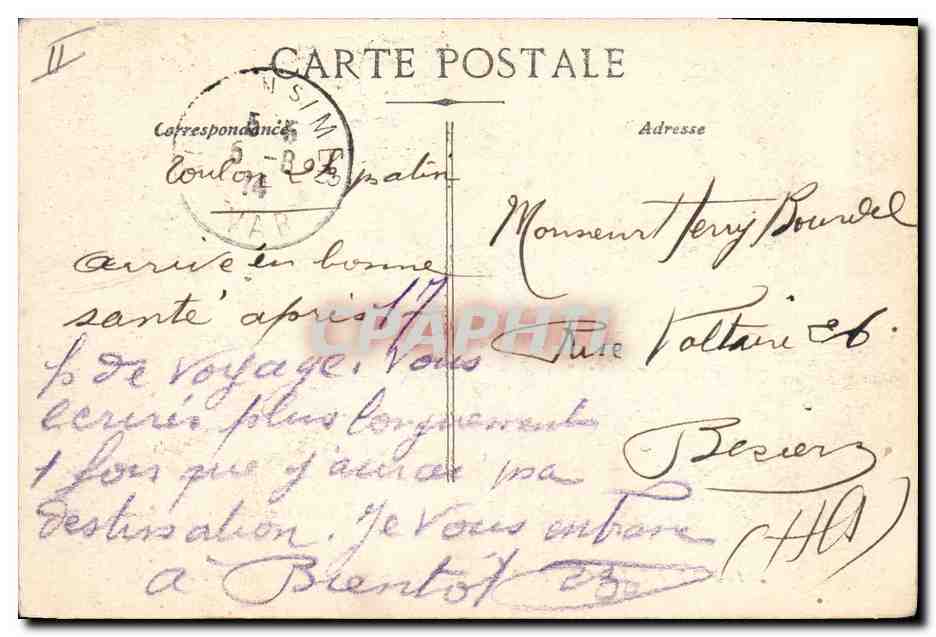 II
CARTE POSTALE
Correspondance
Adresse
NSIM
5 - 8
14
VAR
Toulon 2 h matin
arrivé en bonne
santé après 17
h de voyage. Vous
ecrirai plus longuement
1 fois que j'aurai ma
destination. Je vous embrasse
à Bientôt
Monsieur Henry Bourdel
Rue Voltaire 26.
Beziers
(Ht)
CPAPHIL